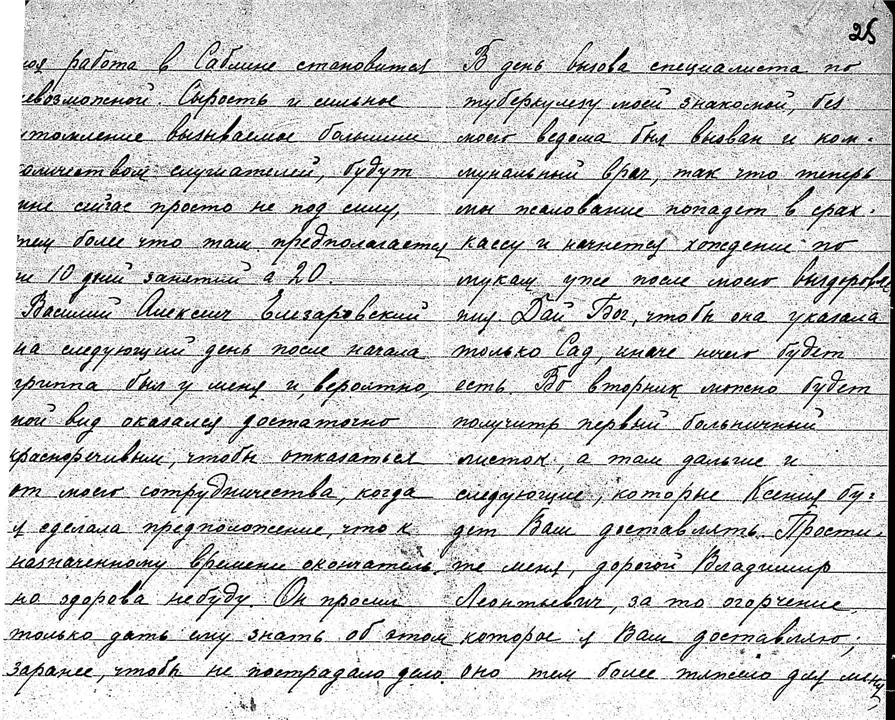 25
моя работа в Саблине становится
невозможной. Сырость и сильное
утомление вызываемое большим
количеством слушателей, будут
мне сейчас просто не под силу,
тем более что там предполагается
не 10 дней занятий а 20.
Василий Алексеич Елезаровский
на следующий день после начала
гриппа был у меня и, вероятно,
мой вид оказался достаточно
красноречивым, чтобы отказаться
от моего сотрудничества, когда
я сделала предположение, что к
назначенному времени окончатель-
но здорова небуду. Он просил
только дать ему знать об этом
заранее, чтобы не пострадало дело.
В день вызова специалиста по
туберкулезу моей знакомой, без
моего ведома был вызван и ком-
мунальный врач, так что теперь
мы жалование попадет в страх-
кассу и начнется хождение по
мукам уже после моего выздоровле
ния. Дай Бог, чтобы она указала
только Сад, иначе нечего будет
есть. Во вторник можно будет
получить первый больничный
листок, а там дальше и
следующие, которые Ксения бу-
дет Вам доставлять. Прости-
те меня, дорогой Владимир
Леонтьевич, за то огорчение,
которое я Вам доставляю;
оно тем более тяжело для меня,